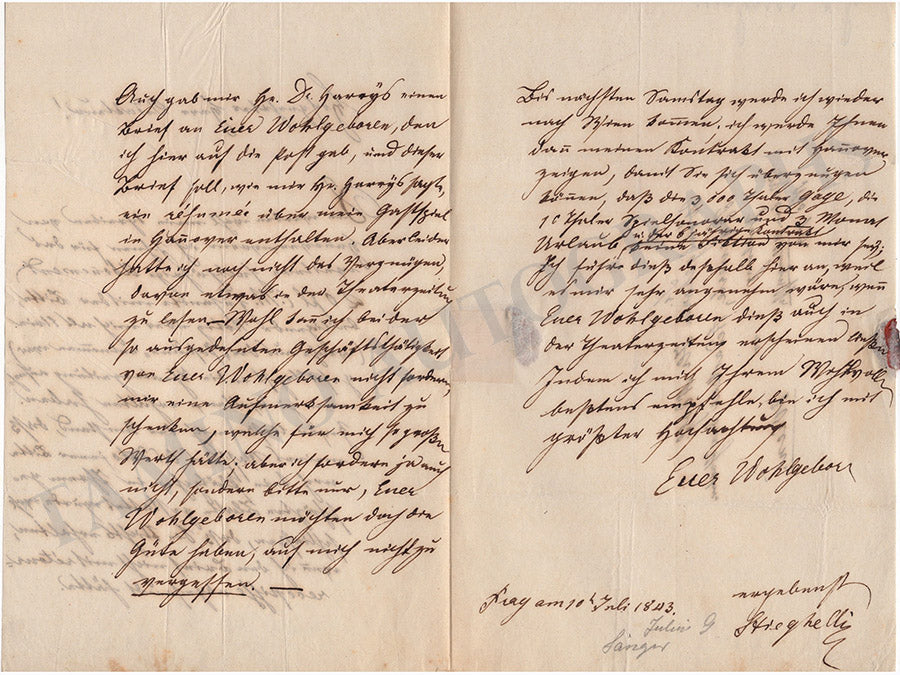 Auch gab mir Hr. Dr. Harrÿs einen
Brief an Euer Wohlgeboren, den
ich hier auf die Post gab, und dieser
Brief soll, wie mir Hr. Harrÿs sagte,
ein résumée über mein Gastspiel
in Hannover enthalten. Aber leider
hatte ich noch nicht das Vergnügen,
davon etwas in der Theaterzeitung
zu lesen. – Wohl kann ich bei der
so ausgedehnten Geschäftsthätigkeit
von Euer Wohlgeboren nicht fordern,
mir eine Aufmerksamkeit zu
schenken, welche für mich so großen
Werth hätte; aber ich fordere ja auch
nicht, sondern bitte nur, Euer
Wohlgeboren möchten doch die
Güte haben, auf mich nicht zu
vergessen. —
Bis nächsten Samstag werde ich wieder
nach Wien kommen, ich werde Ihnen
dann meinen Kontrakt mit Hannover
zeigen, damit Sie sich überzeugen
können, daß die 3,000 Thaler Gage, die
10 Thaler Spielhonorar und 3 Monat
Urlaub u. der 6 jährige Kontrakt keine Fiktion von mir sey;
Ich führe dieß deßhalb hier an, weil
es mir sehr angenehm wäre, wenn
Euer Wohlgeboren dieß auch in
der Theaterzeitung erscheinen ließen
Indem ich mich Ihrem Wohlwollen
bestens empfehle, bin ich mit
größter Hochachtung
Euer Wohlgeboren
ergebenst
Prag am 10t Juli 1843.
Stieghelli
Julius G
Sänger
TAMINO AUTOGRAPHS